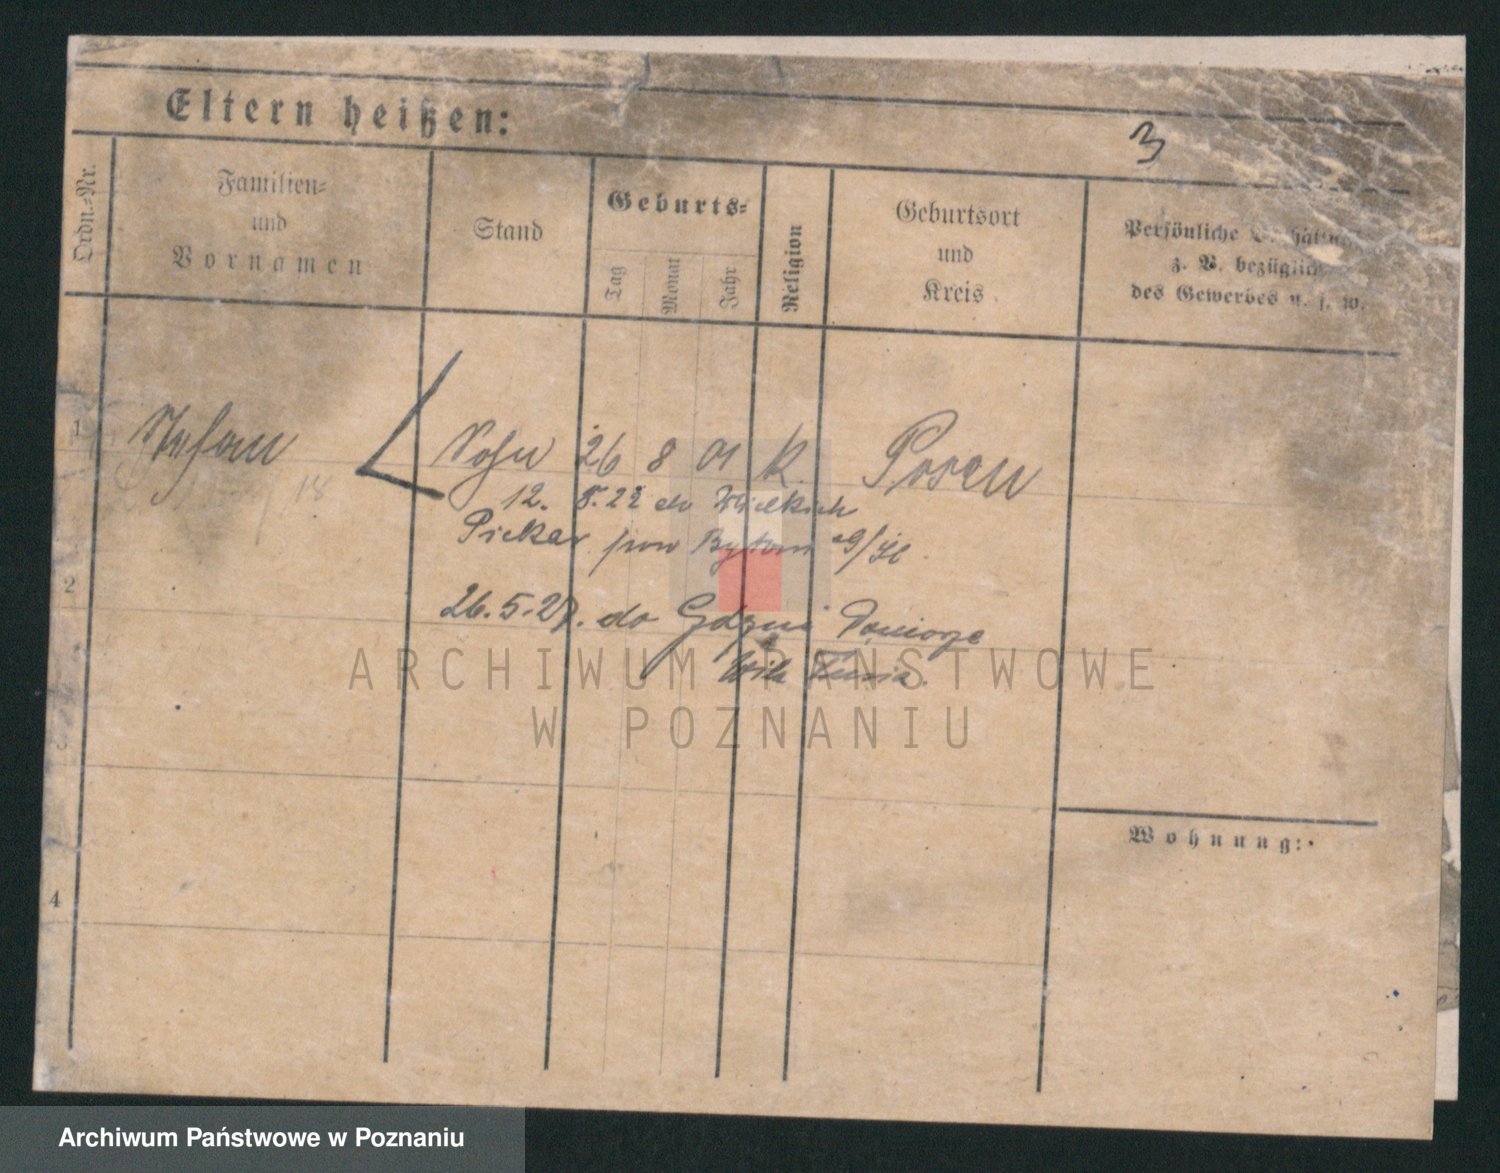 Eltern heißen:
3
Ordn.-Nr.
Familien-
und
Vornamen
Stand
Geburts-
Tag
Monat
Jahr
Religion
Geburtsort
und
Kreis
Persönliche
z. B. bezüglich
des Gewerbes u. s. w.
1 Stefan Sohn 26 8 01 K. Posen
18
12. 8.22 do Wielkich
Piekar pow Bytom G/Śl.
2
26.5.27. do Gdyni Pomorze
Willa
ARCHIWUM PAŃSTWOWE
W POZNANIU
Wohnung:
4
Archiwum Państwowe w Poznaniu